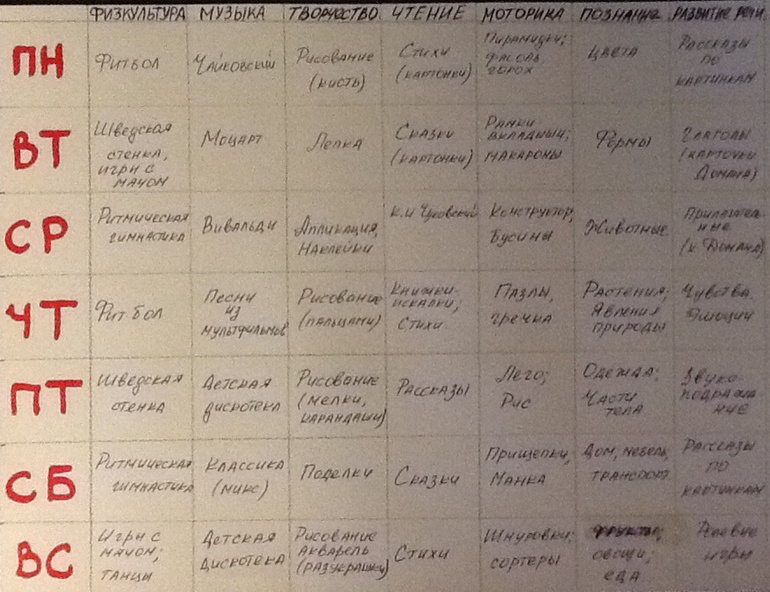 ФИЗКУЛЬТУРА МУЗЫКА ТВОРЧЕСТВО ЧТЕНИЕ МОТОРИКА ПОЗНАНИЕ РАЗВИТИЕ РЕЧИ
ПН
Фитбол
Чайковский
Рисование
(кисть)
Стихи
(картонки)
Пирамидки;
фасоль,
горох
Цвета
Рассказы
по
картинкам
ВТ
Шведская
стенка,
игры с
мячом
Моцарт
Лепка
Сказки
(картонки)
Рамки-
вкладыши;
макароны
Формы
Глаголы
(карточки
Домана)
СР
Ритмическая
гимнастика
Вивальди
Аппликация,
Наклейки
К.И Чуковский
Конструктор,
Бусины
Животные
Прилагатель-
ные
(к. Домана)
ЧТ
Фитбол
Песни
из
мультфильмов
Рисование
(пальцами)
Книжки-
искалки;
Стихи
Пазлы,
гречка
Растения;
Явления
природы
Чувства
Эмоции
ПТ
Шведская
стенка
Детская
дискотека
Рисование
(мелки,
карандаши)
Рассказы
Лего;
Рис
Одежда;
Части
тела
Звуко
подража
ние
СБ
Ритмическая
гимнастика
Классика
(микс)
Поделки
Сказки
Прищепки,
Манка
Дом, мебель,
транспорт
Рассказы
по
картинкам
ВС
Игры с
мячом;
танцы
Детская
дискотека
Рисование
Акварель
(разукрашки)
Стихи
Шнуровки;
сортеры
фрукты,
овощи;
еда
Ролевые
игры